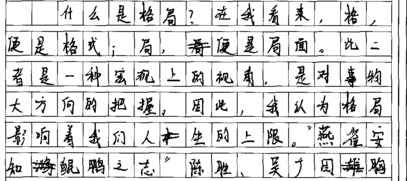 什么是格局？在我看来，格，
便是格式；局，便是局面。此二
者是一种宏观上的视角，是对事物
大方向的把握。因此，我认为格局
影响着我们人生的上限。“燕雀安
知鲲鹏之志”陈胜、吴广因胸